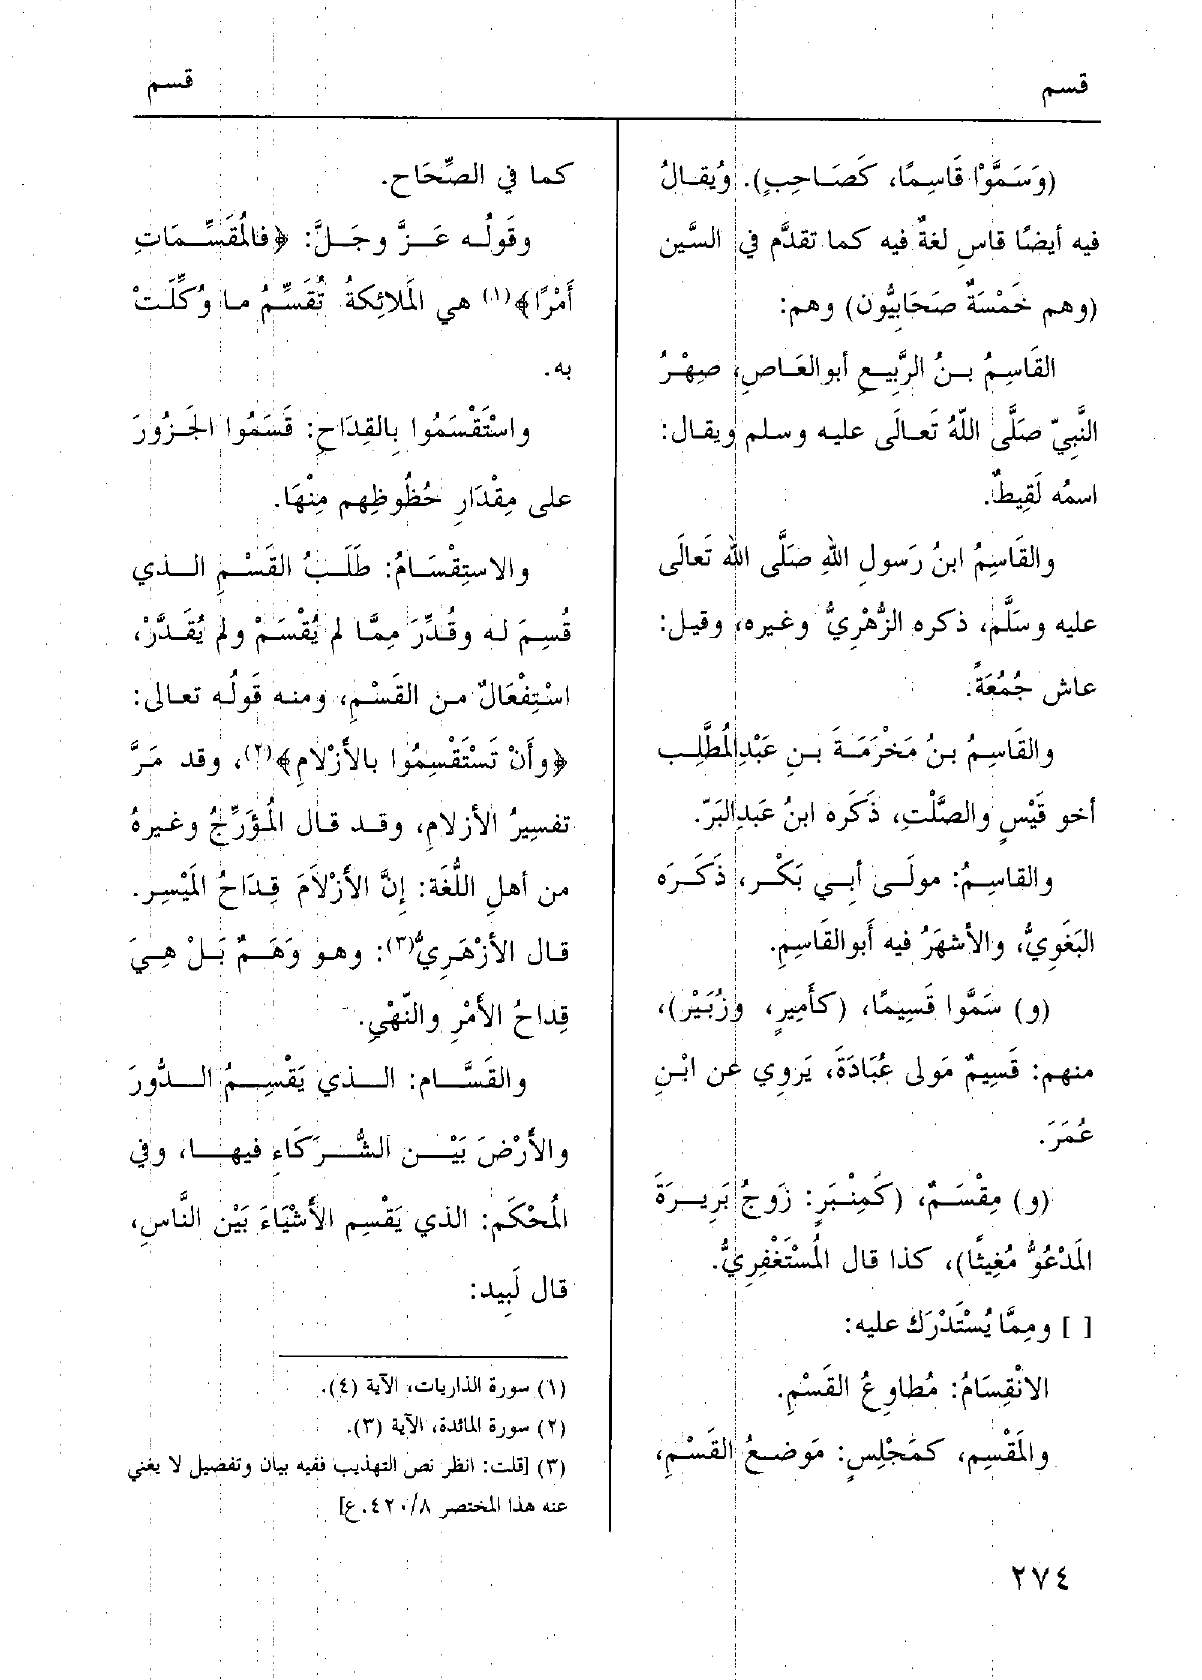 قسم
قسم
(وَسَمَّوْا قَاسِمًا، كَصَاحِبٍ). وُيقالُ
فيه أيضًا قاسِ لغةٌ فيه كما تقدَّم في السَّين
(وهم خَمْسَةٌ صَحَابِيُّون) وهم:
القَاسِمُ بنُ الرَّبِيعِ أبو العَاصِ، صِهْرُ
النَّبِيّ صَلَّى اللّهُ تَعالَى عليه وسلم ويقال:
اسمُه لَقِيطٌ.
والقَاسِمُ ابنُ رَسولِ اللهِ صَلَّى الله تَعالَى
عليه وسَلَّم، ذكره الزُّهْرِيُّ وغيره، وقيل:
عاش جُمُعَةً.
والقَاسِمُ بنُ مَخْرَمَةَ بنِ عَبْدِالمُطَّلِب
أخو قَيْسٍ والصَّلْتِ، ذَكَره ابنُ عَبدِالبَرّ.
والقاسِمُ: مولَى أبي بَكْر، ذَكَرَه
البَغَوِيُّ، والأشهَرُ فيه أَبوالقَاسِمِ.
(و) سَمَّوا قَسِيمًا، (كأَمِيرٍ، وزُبَيْر)،
منهم: قَسِيمٌ مَولى عُبَادَةَ، يَروِي عن ابْنِ
عُمَرَ.
(و) مِقْسَمٌ، (كَمِنْبَرٍ: زَوجُ بَرِيرَةَ
المَدْعُوُّ مُغِيثًا)، كذا قال المُسْتَغْفِرِيُّ.
[ ] ومِمَّا يُسْتَدْرَك عليه:
الانْقِسَامُ: مُطاوِعُ القَسْمِ.
والمَقْسِم، كمَجْلِسٍ: مَوضعُ القَسْمِ،
كما في الصِّحَاح.
وقَولُه عَزَّ وجَلَّ: ﴿فالمُقَسِّمَاتِ
أَمْرًا﴾(١) هي المَلائِكةُ تُقَسِّمُ ما وُكِّلَتْ
به.
واسْتَقْسَمُوا بِالقِدَاحِ: قَسَمُوا الجَزُورَ
على مِقْدَارِ حُظُوظِهم مِنْهَا.
والاستِقْسَامُ: طَلَبُ القَسْمِ الذي
قُسِمَ له وقُدِّرَ مِمَّا لم يُقْسَمْ ولم يُقَدَّرْ،
اسْتِفْعَالٌ من القَسْمِ، ومنه قَولُه تعالى:
﴿وأَنْ تَسْتَقْسِمُوا بالأَزْلامِ﴾(٢)، وقد مَرَّ
تفسِيرُ الأزلامِ، وقد قال المُؤَرِّجُ وغيرهُ
من أهلِ اللُّغَة: إنَّ الأَزْلاَمَ قِدَاحُ المَيْسِر.
قال الأزْهَرِيُّ(٣): وهو وَهَمٌ بَلْ هِيَ
قِداحُ الأَمْرِ والنَّهْيِ.
والقَسَّام: الذي يَقْسِمُ الدُّورَ
والأَرْضَ بَيْن الشُّرَكَاءِ فيها، وفي
المُحْكَم: الذي يَقْسِم الأَشْيَاءَ بَيْن النَّاسِ،
قال لَبِيد:
(١) سورة الذاريات، الآية (٤).
(٢) سورة المائدة، الآية (٣).
(٣) [قلت: انظر نص التهذيب ففيه بيان وتفصيل لا يغني
عنه هذا المختصر ٤٢٠/٨.ع]
٢٧٤